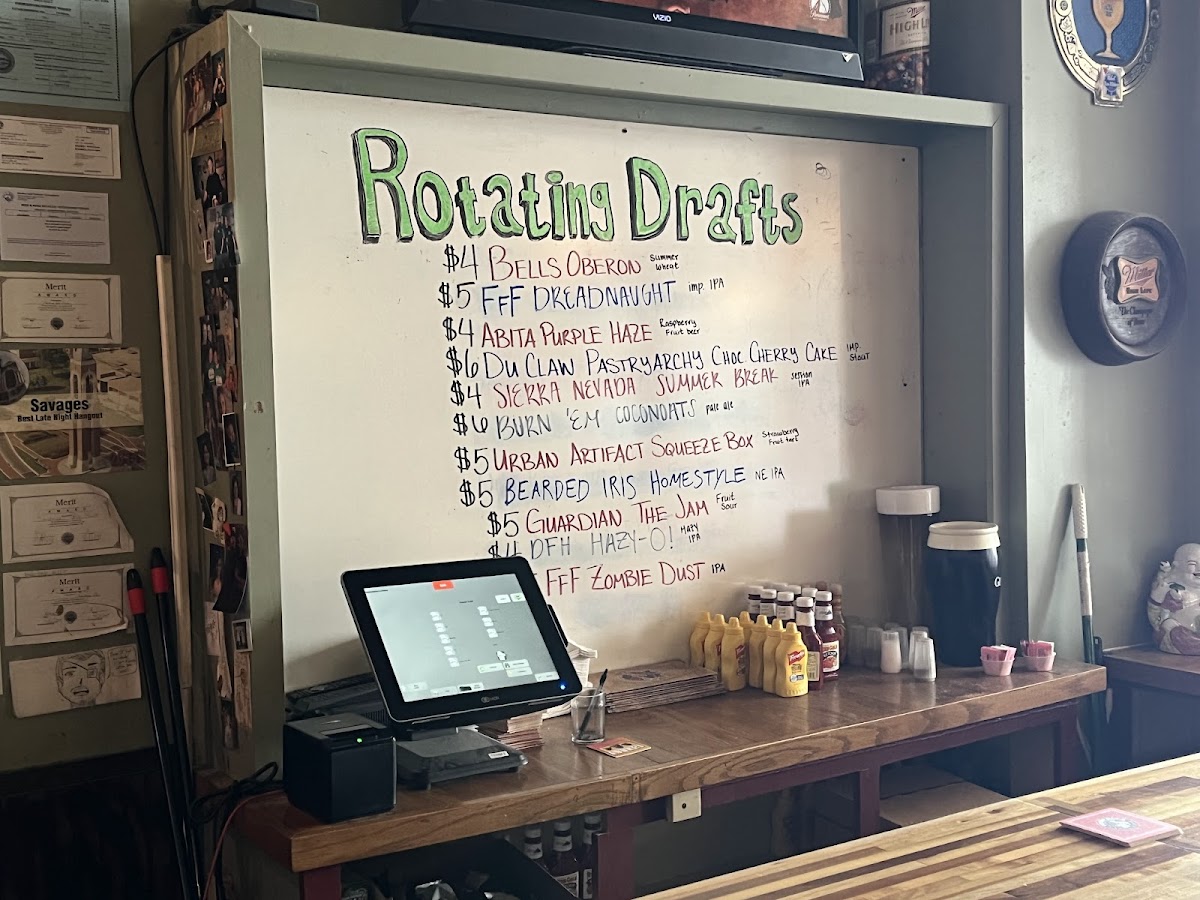 VIZIO
Miller
HIGH LIFE
Rotating Drafts
$4 BELLS OBERON Summer Wheat
$5 FFF DREADNAUGHT imp. IPA
$4 ABITA PURPLE HAZE Raspberry Fruit beer
$6 DU CLAW PASTRYARCHY CHOC CHERRY CAKE IMP. STOUT
$4 SIERRA NEVADA SUMMER BREAK SESSION IPA
$6 BURN 'EM COCONOATS pale ale
$5 URBAN ARTIFACT SQUEEZE BOX Strawberry Fruit tart
$5 BEARDED IRIS HOMESTYLE NE IPA
$5 GUARDIAN THE JAM Fruit Sour
$4 DFH HAZY-O! HAZY IPA
FFF ZOMBIE DUST IPA
Merit
AWARD
Savages
Best Late Night Hangout
Merit
AWARD
Merit
AWARD
Miller
HIGH LIFE
The Champagne
of Beers